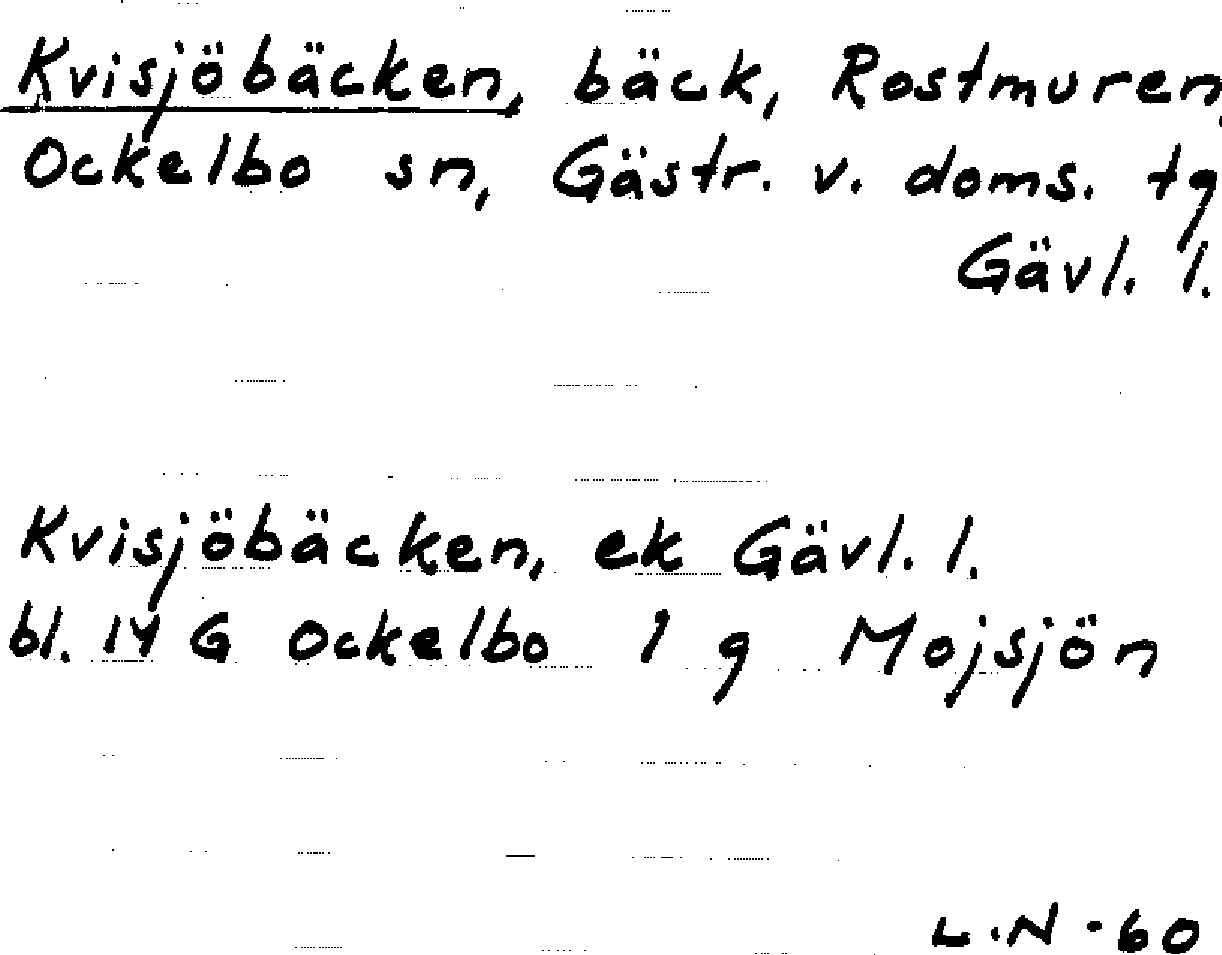 Kvisjöbäcken, bäck, Rostmuren,
Ockelbo sn, Gästr. v. doms. tg
Gävl. l.
Kvisjöbäcken, ek Gävl. l.
bl. 14 G Ockelbo 1 g Mojsjön
L.N -60